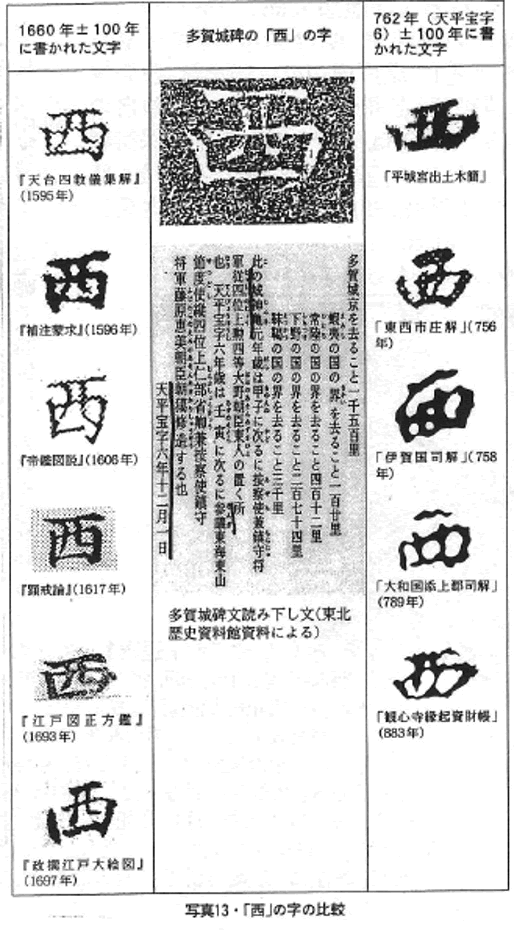 1660年±100年
に書かれた文字
西
『天台四教儀集解』
(1595年)
西
『補注蒙求』(1596年)
西
『帝鑑図説』(1606年)
西
『顕戒論』(1617年)
西
『江戸図正方鑑』
(1693年)
西
『改撰江戸大絵図』
(1697年)
多賀城碑の「西」の字
西
多賀城京を去ること一千五百里
蝦夷の国の界を去ること一百廿里
常陸の国の界を去ること四百十二里
下野の国の界を去ること二百七十四里
靺鞨の国の界を去ること三千里
此の城は神亀元年歳は甲子に次るに按察使兼鎮守将
軍従四位上勲四等大野朝臣東人の置く所
也 天平宝字六年歳は壬寅に次るに参議東海東山
節度使従四位上仁部省卿兼按察使鎮守
将軍藤原恵美朝臣朝獦修造する也
天平宝字六年十二月一日
多賀城碑文読み下し文(東北
歴史資料館資料による)
762年(天平宝字
6)±100年に書
かれた文字
西
「平城宮出土木簡」
西
「東西市庄解」(756
年)
西
「伊賀国司解」(758
年)
西
「大和国添上郡司解」
(789年)
西
「観心寺縁起資財帳」
(883年)
写真13・「西」の字の比較